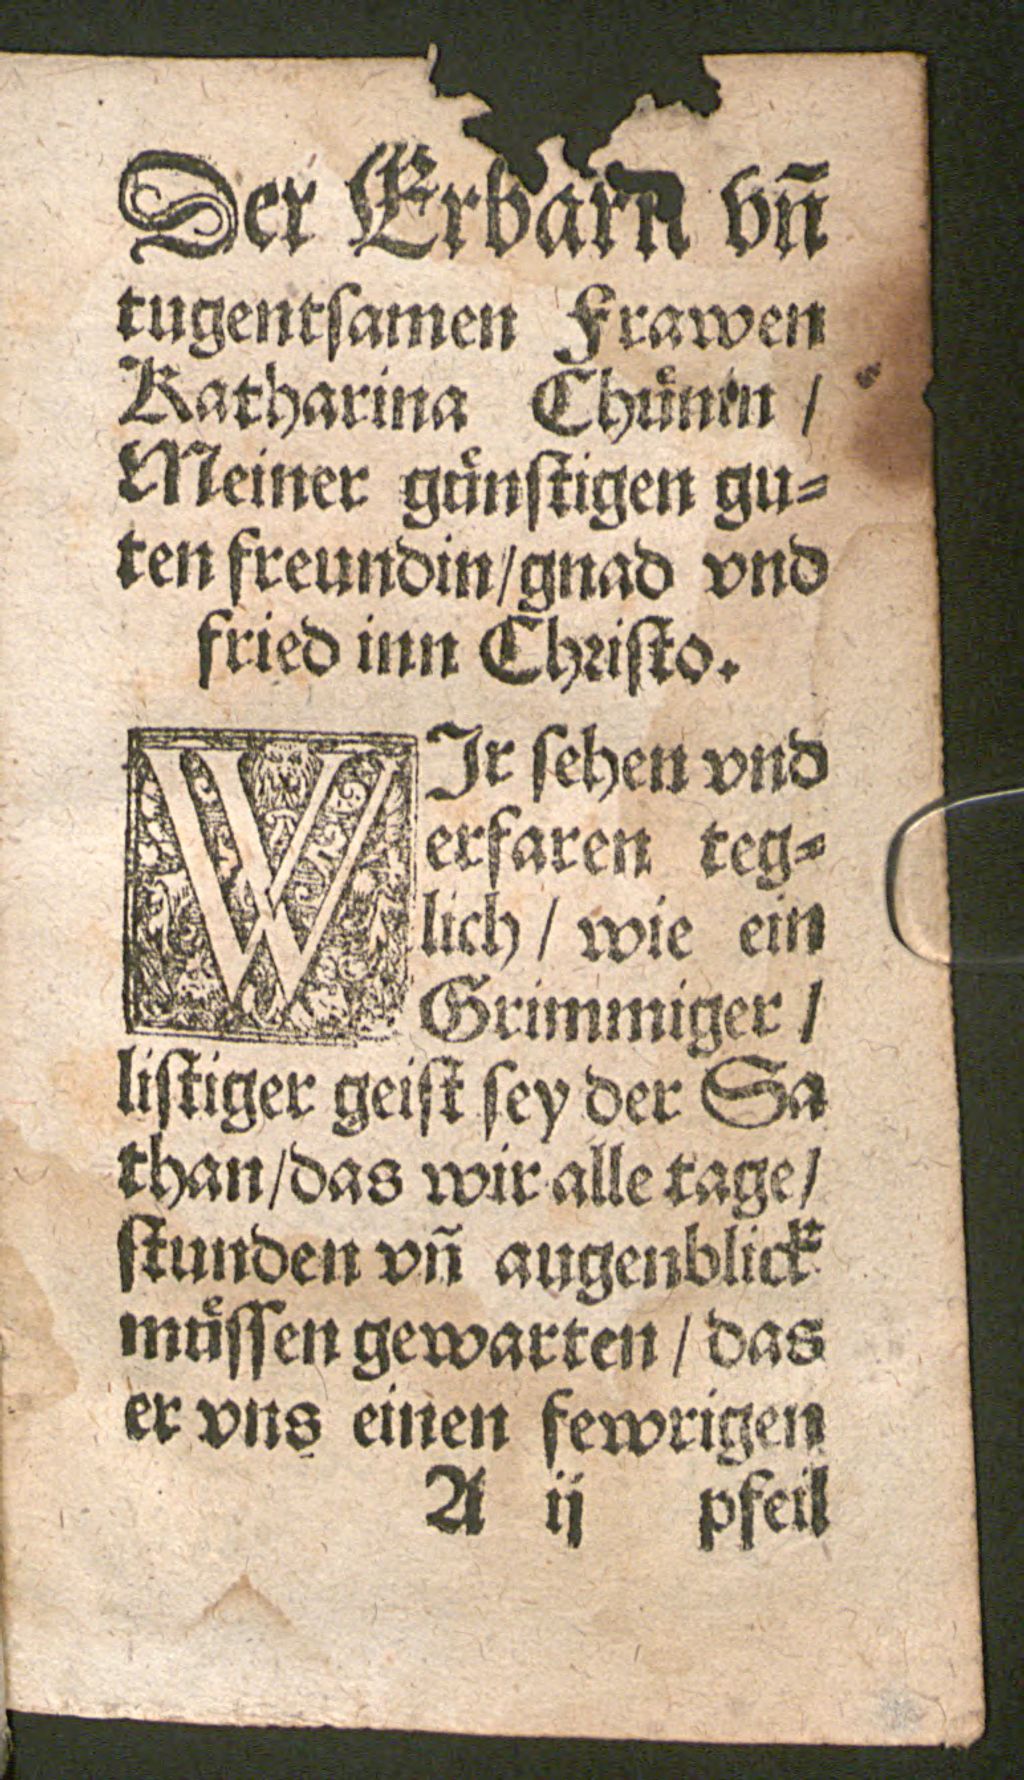 Der Erbarn vñ
tugentſamen Frawen
Katharina Chuͤnin /
Meiner guͤnſtigen gu⸗
ten freundin/gnad vnd
fried inn Chriſto.
WJr ſehen vnd
erfaren teg⸗
lich / wie ein
Grimmiger /
liſtiger geiſt ſey der Sa
than/das wir alle tage/
ſtunden vñ augenblick
muͤſſen gewarten / das
er vns einen fewrigen
A ij pfeil